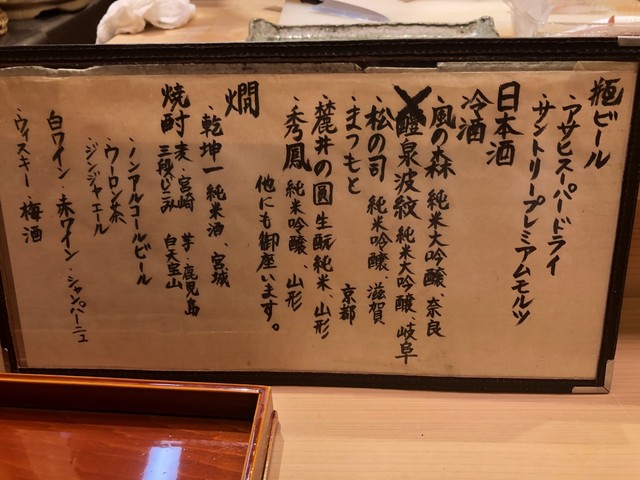 瓶ビール
・アサヒスーパードライ
・サントリープレミアムモルツ
日本酒
冷酒
・風の森 純米大吟醸、奈良
醴泉波紋 純米大吟醸、岐阜
・松の司 純米吟醸、滋賀
・まつもと 京都
・麓井の圓 生酛純米、山形
・秀鳳 純米吟醸、山形
他にも御座います。
燗
・乾坤一 純米酒、宮城
焼酎 麦・宮崎 芋・鹿児島
三段じこみ 白天宝山
・ノンアルコールビール
・ウーロン茶
・ジンジャエール
・白ワイン・赤ワイン・シャンパーニュ
・ウィスキー・梅酒